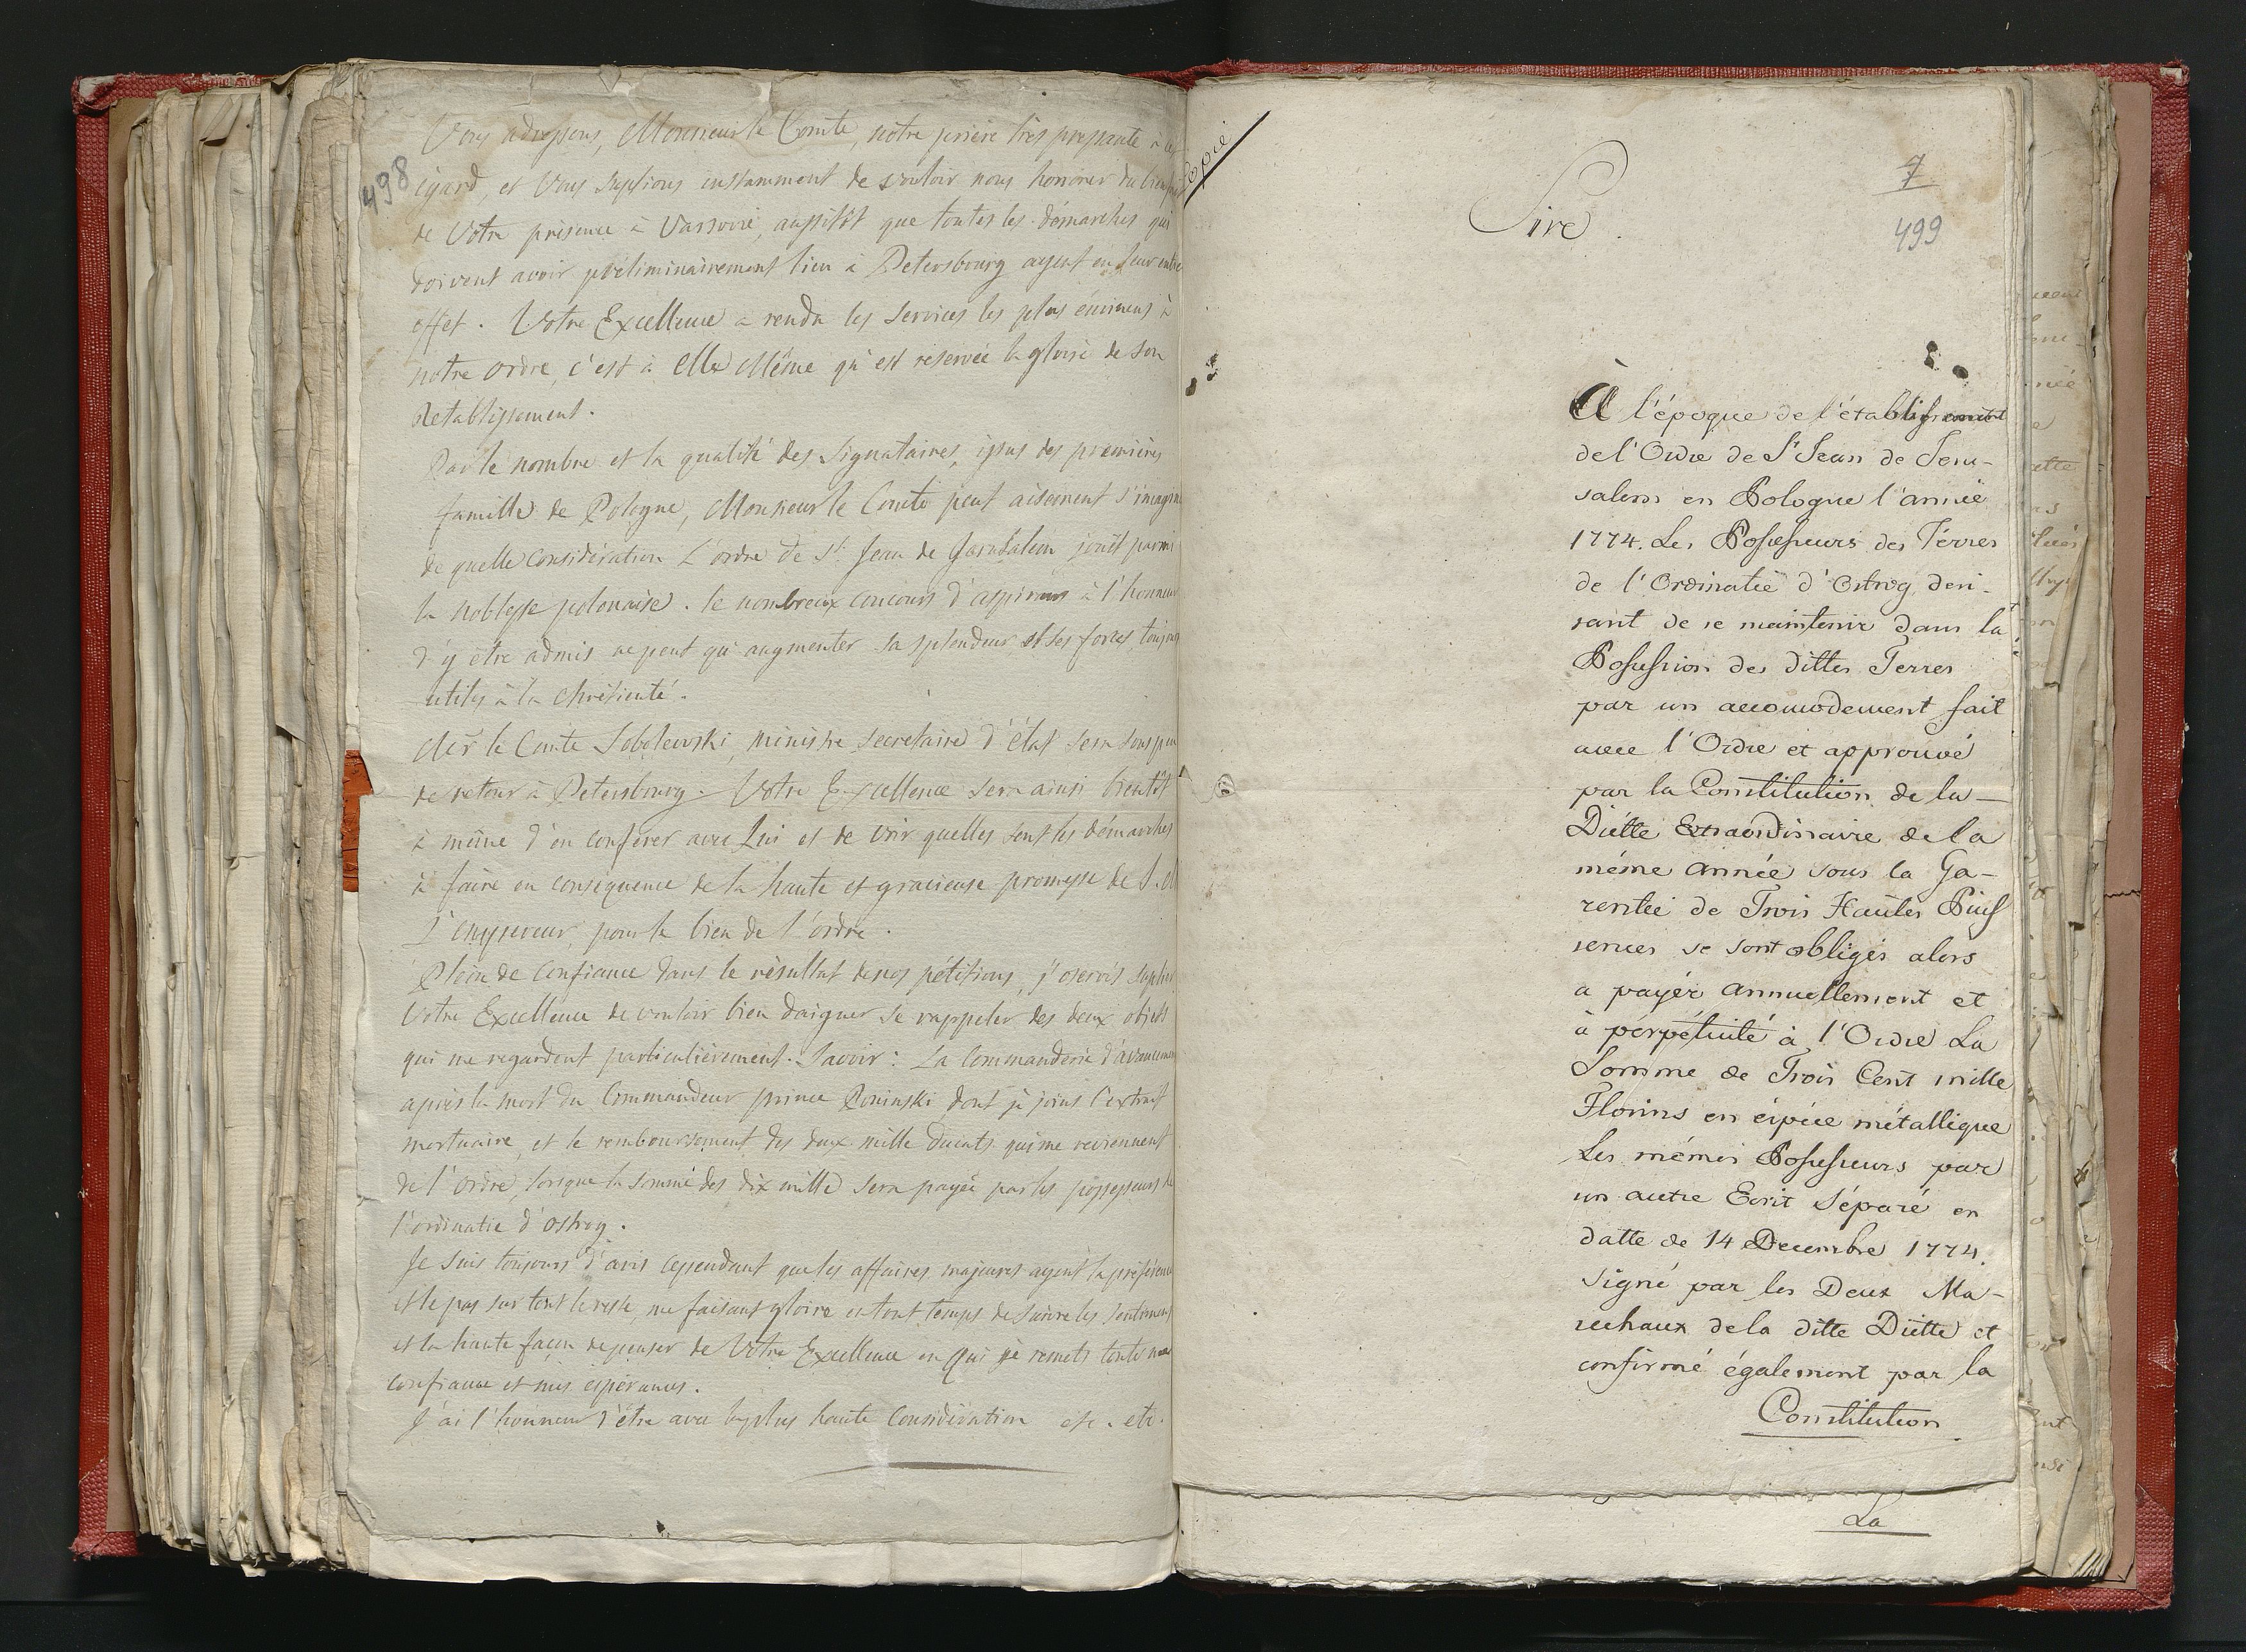 498
Vous adressons, Monsieur le Comte, notre prière très pressante à cet
égard, et Vous suplions instamment de vouloir nous honorer du bienfait
de Votre présence à Varsovie, aussitôt que toutes les démarches qui
doivent avoir préliminairement lieu à Petersbourg ayent eu leur entier
effet. Votre Excellence a rendu les services les plus éminens à
notre ordre, c'est à Elle Même qu'est reservée la gloire de son
retablissement.
Par le nombre et la qualité des signataires, issus des premières
famille de Pologne, Monsieur le Comte peut aisement s'imaginer
de quelle considération L'ordre de St. Jean de Jerusalem jouit parmi
la noblesse polonaise. le nombreux concours d'aspirans à l'honneur
d'y être admis ne peut qu'augmenter sa splendeur, et ses forces, toujours
utiles à la chrétienté.
Mer le Comte Sobolewski, ministre secretaire d'état sera sous peu
de retour à Petersbourg. Votre Excellence sera ainsi bientôt
à même d'en conférer avec Lui et de voir quelles sont les démarches
à faire en conséquence de la haute et gracieuse promesse de S. M
L'empereur, pour le bien de l'ordre.
Plein de confiance dans le résultat de nos pétitions, j'oserois suplier
Votre Excellence de vouloir bien daigner se rappeler des deux objets
qui me regardent particulièrement. Savoir: La Commanderie d'avancement
après la mort du Commandeur prince Poninski dont je joins l'extrait
mortuaire, et le remboursement des deux mille ducats qui me reviennent
de l'ordre, lorsque la somme des dix mille sera payée par les possesseurs de
l'ordinatie d'Ostrog.
Je suis toujours d'avis cependant que les affaires majeures ayent la préférence
et le pas sur tout le reste, me faisant gloire en tout temps de suivre les sentimens
et la haute façon de penser de Votre Excellence en Qui je remets toute ma
confiance et mes espérances.
J'ai l'honneur d'être avec la plus haute Considération etc. etc.
Copie
7
499
Sire.
À l'époque de l'établissement
de l'Ordre de St Jean de Jeru-
salem en Pologne l'année
1774. Les Possesseurs des Terres
de l'Ordinatie d'Ostrog desi-
rant de se maintenir dans la
Possession des dittes Terres
par un accomodement fait
avec l'Ordre et approuvé
par la Constitution de la
Diette Extraordinaire de la
même année sous la Ga-
rentie de Trois Hautes Puis
sences se sont obligés alors
a payér annuellement et
à pérpétuité à l'Ordre La
Somme de Trois Cent mille
Florins en éspéce métallique
Les mémes Possesseurs par
un autre Ecrit Séparé en
datte de 14 Decembre 1774.
signé par les Deux Ma-
rechaux de la ditte Diette et
confirmé également par la
Constitution
La